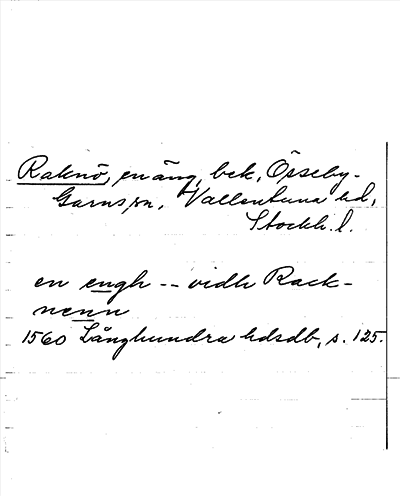 Raknö, en äng, bek, Össeby-
Garns sn, Vallentuna hd,
Stockh. l.
en engh -- vidh Rack-
nenn
1560 Långhundra hdsdb, s. 125.